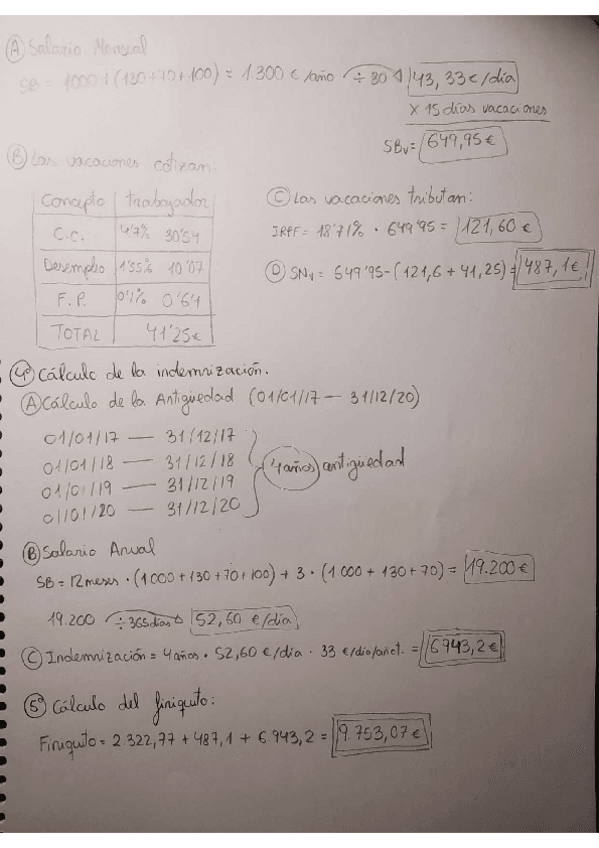 Ⓐ Salario Mensual
SB = 1000 + (130+70+100) = 1.300 € /año ÷30 43,33 €/día
x 15 días vacaciones
SBv = 649,95 €
Ⓑ Las vacaciones cotizan:
Concepto trabajador
C.C. 4'7% 30'54
Desempleo 1'55% 10'07
F.P. 0'1% 0'64
TOTAL 41'25€
Ⓒ Las vacaciones tributan:
IRPF = 18'71% · 649'95 = 121,60 €
Ⓓ SNv = 649'95 - (121,6 + 41,25) = 487,1 €
4º Cálculo de la indemnización.
Ⓐ Cálculo de la Antigüedad (01/01/17 — 31/12/20)
01/01/17 — 31/12/17
01/01/18 — 31/12/18
01/01/19 — 31/12/19
01/01/20 — 31/12/20
4 años antigüedad
Ⓑ Salario Anual
SB = 12 meses · (1000 + 130 + 70 + 100) + 3 · (1 000 + 130 + 70) = 19.200 €
19.200 ÷ 365 días 52,60 €/día
Ⓒ Indemnización = 4 años · 52,60 €/día · 33 €/día/añot. = 6943,2 €
5º Cálculo del finiquito:
Finiquito = 2.322,77 + 487,1 + 6.943,2 = 9.753,07 €